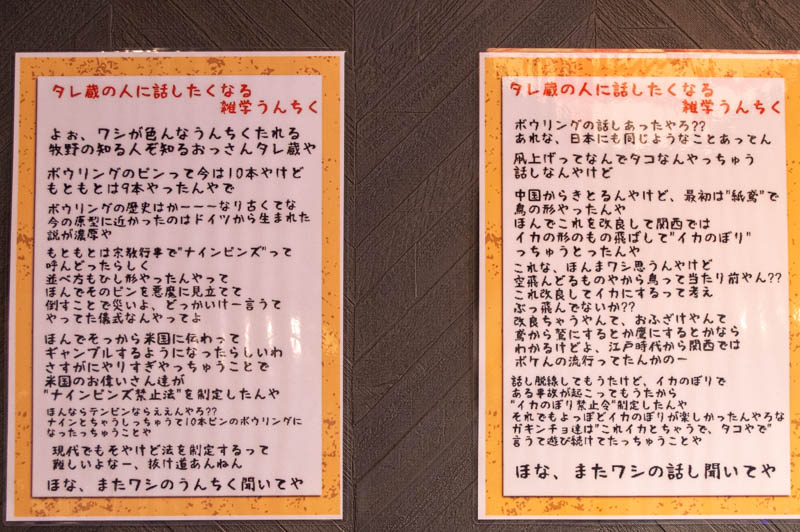 タレ蔵の人に話したくなる
雑学うんちく
よぉ、ワシが色んなうんちくたれる
牧野の知る人ぞ知るおっさんタレ蔵や
ボウリングのピンって今は10本やけど
もともとは9本やったんやで
ボウリングの歴史はかーーーなり古くてな
今の原型に近かったのはドイツから生まれた
説が濃厚や
もともとは宗教行事で"ナインピンズ"って
呼んどったらしく
並べ方もひし形やったんやって
ほんでそのピンを悪魔に見立てて
倒すことで災いよ、どっかいけー言うて
やってた儀式なんやってよ
ほんでそっから米国に伝わって
ギャンブルするようになったらしいわ
さすがにやりすぎやっちゅうことで
米国のお偉いさん達が
"ナインピンズ禁止法"を制定したんや
ほんならテンピンならええんやろ??
ナインとちゃうしっちゅうて10本ピンのボウリングに
なったっちゅうことや
現代でもそやけど法を制定するって
難しいよなー、抜け道あんねん
ほな、またワシのうんちく聞いてや
タレ蔵の人に話したくなる
雑学うんちく
ボウリングの話しあったやろ??
あれな、日本にも同じようなことあってん
凧上げってなんでタコなんやっちゅう
話しなんやけど
中国からきとるんやけど、最初は"紙鳶"で
鳥の形やったんや
ほんでこれを改良して関西では
イカの形のもの飛ばして"イカのぼり"
っちゅうとったんや
これな、ほんまワシ思うんやけど
空飛んどるものやから鳥って当たり前やん??
これ改良してイカにするって考え
ぶっ飛んでないか??
改良ちゃうやんて、おふざけやんて
鳶から鷲にするとか鷹にするとかなら
わかるけどよ、江戸時代から関西では
ボケんの流行ってたんかのー
話し脱線してもうたけど、イカのぼりで
ある事故が起こってもうたから
"イカのぼり禁止令"制定したんや
それでもよっぽどイカのぼりが楽しかったんやろな
ガキンチョ達は"これイカとちゃうで、タコやで"
言うて遊び続けてたっちゅうことや
ほな、またワシの話し聞いてや